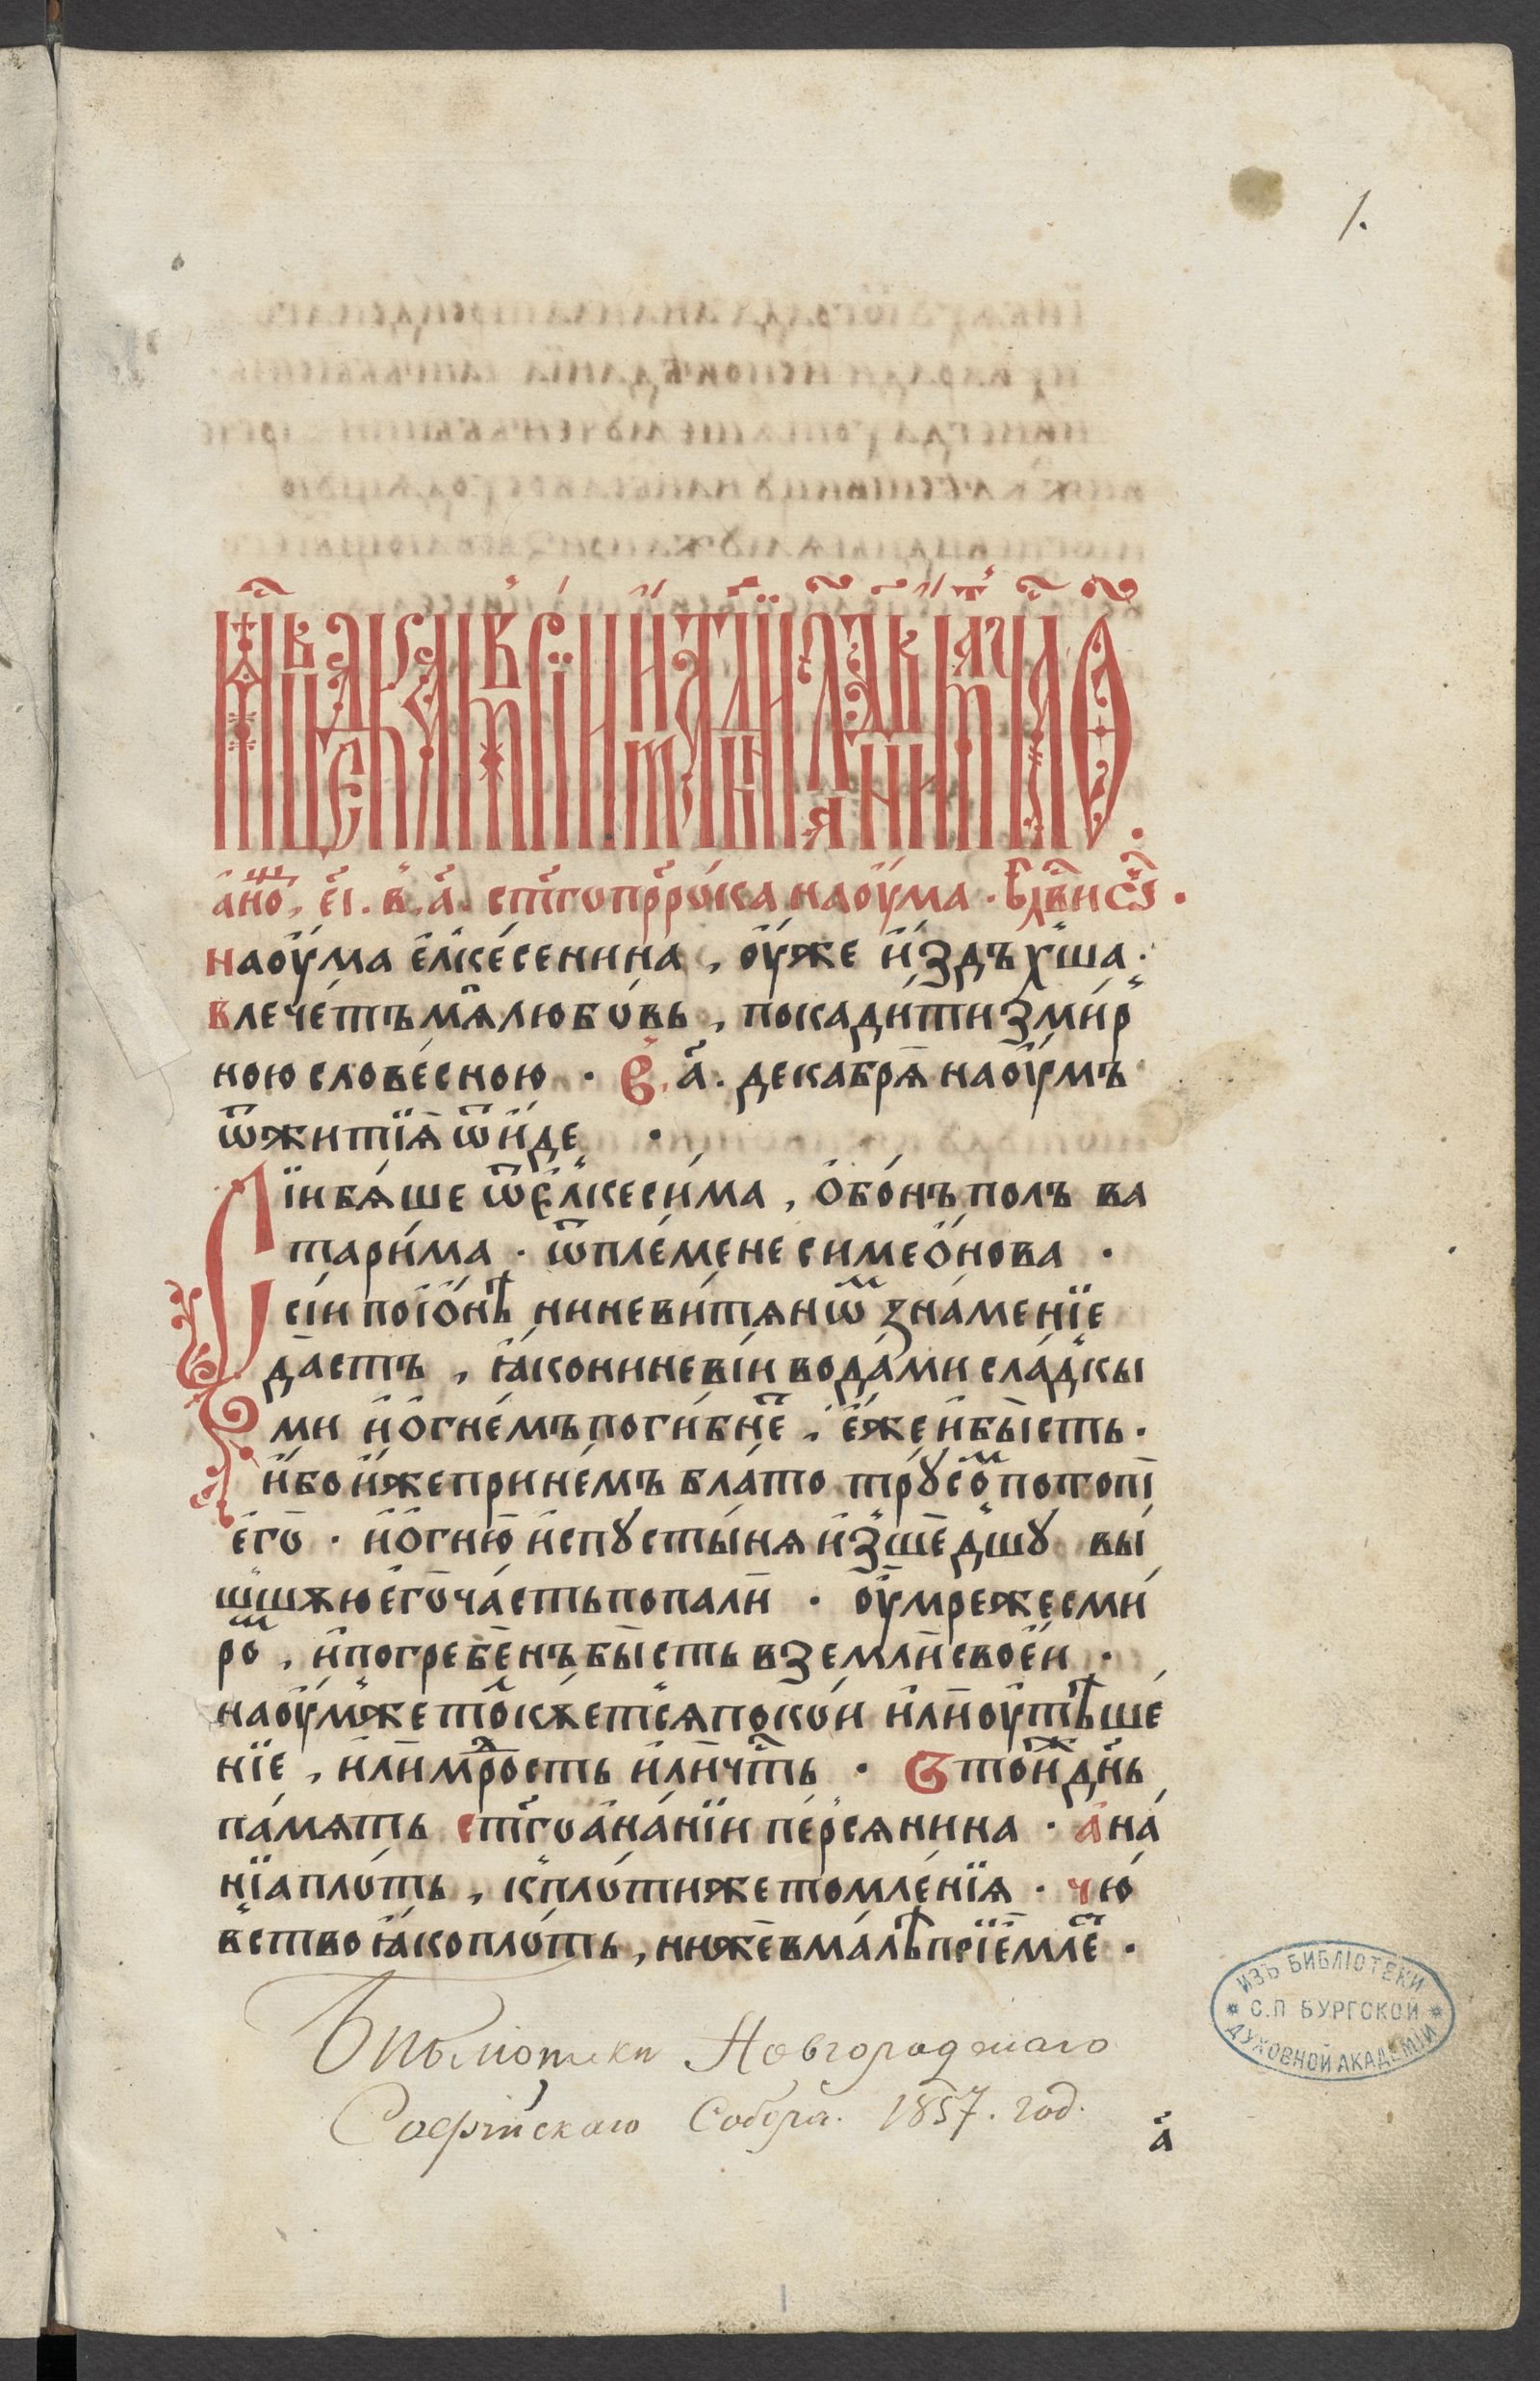 1.
а҆но҆ , є҃і . в . а҃ . ст҃го прⷪ҇ро́ка наоу́ма .
наоу́ма є҆лкесе́нина , оу҆́же и҆здъхша .
влече́тъ мѧ любо́вь , покади́ти змир
ною слове́сною . в , а҃ . декабрѧ̀ наоу́мъ
ѿ житїѧ̀ ѿи́де .
Сїи бѧ́ше ѿ є҆лкеси́ма , ѻ҆бо́нъ полъ ва
тари́ма . ѿ пле́мене симео́нова .
сі́и по іѡ́нѣ ниневи́тѧнѡⷨ зна́менїе
да́стъ , ꙗ҆́ко ниневі́и вода́ми сла́дкы
ми и҆ ѻ҆гне́мъ поги́бнеⷮ , є҆́же и҆ бы́сть .
и҆́бо и҆́же при не́мъ бла́то трꙋсоⷨ потопі̀
є҆го̀ . и҆ ѻ҆гню̀ и҆с пꙋсты́нѧ и҆зше́дшꙋ вы́
шшѫю є҆го̀ ча́сть попалѝ . оу҆́мре же с ми́
роⷨ , и҆ погребе́нъ бы́сть в землѝ свое́и .
наоу́м же то́лкꙋетсѧ поко́и и҆лѝ оу҆тѣше́
нїе , и҆лѝ мрⷣость и҆лѝ чⷭ҇ть . В то́йже дн҃ь
па́мѧть ст҃го а҆на́нїи пе́рсѧнина . а҆на́
нїа пло́ть , к пло́ти же томле́нїѧ . чю́
вство ꙗ҆́ко пло́ть , ниже́ в ма́лѣ прїе́млеⷮ .
Библіотеки Новгородскаго
Софійскаго Собора. 1857. год.
а҃
ИЗЪ БИБЛІОТЕКИ
С.П БУРГСКОЙ
ДУХОВНОЙ АКАДЕМІИ